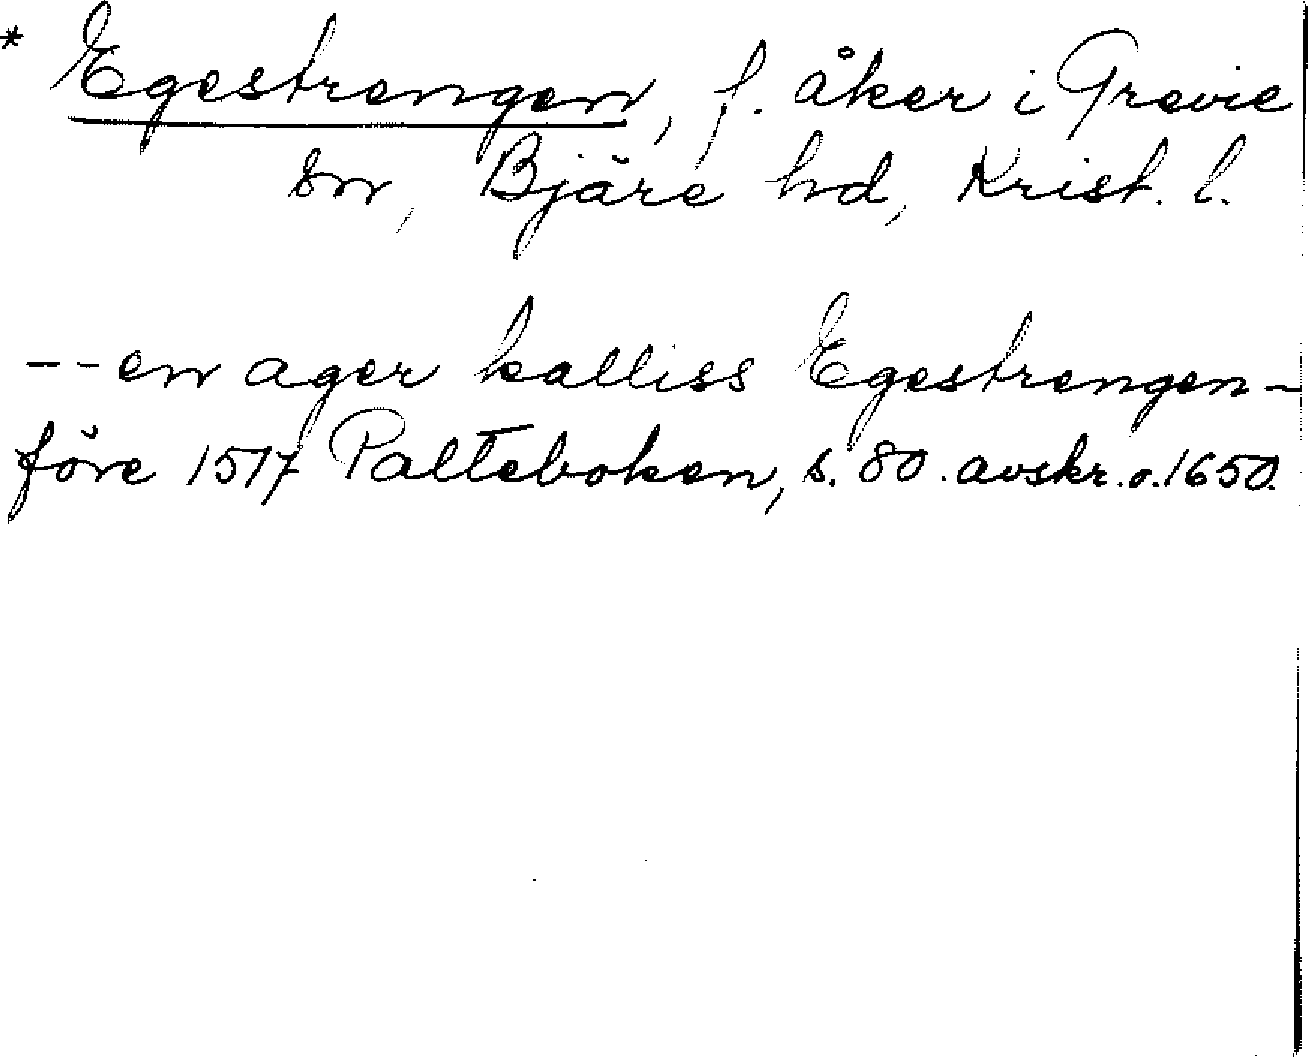 * Egestrengen, f. åker i Grevie
sn, Bjäre hd, Krist. l.
-- en ager kalliss Egestrengen -
före 1517 Palteboken, s. 80. avskr. o. 1650.